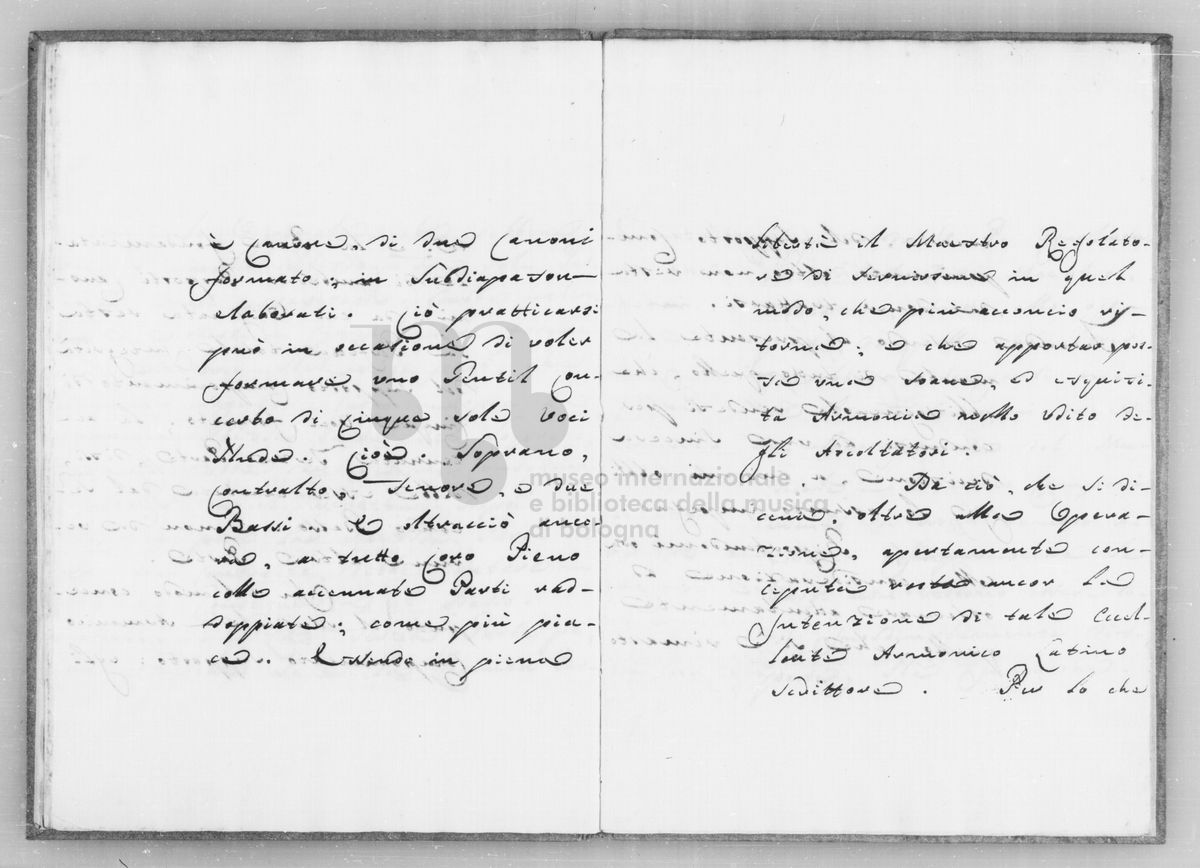 è Canone, di due Canoni
formato; in Subdiapason
elaborati. Ciò pratticarsi
può in occasione di voler
formare uno Gentil Con-
certo di Cinque sole Voci
Cioè. Soprano,
Contralto, Tenore, e due
Bassi. E oltracciò anco-
ra, a tutto Coro Pieno
colle accennate Parti rad-
doppiate; come più pia-
ce. Essendo in piena
libertà il Maestro Regolato-
re di servirsene in quel
modo, che più acconcio ri-
torna; e che apportar pos-
sa una soave, ed esquisi-
ta Armonia nello Udito de-
gli Ascoltatori.
Da ciò, che si di-
oltre alla Opera-
zione, apertamente con-
ceputa resta ancor la
Intenzione di tale Eccel-
lente Armonico Latino
Scrittore. Per lo che
museo internazionale
e biblioteca della musica
di bologna